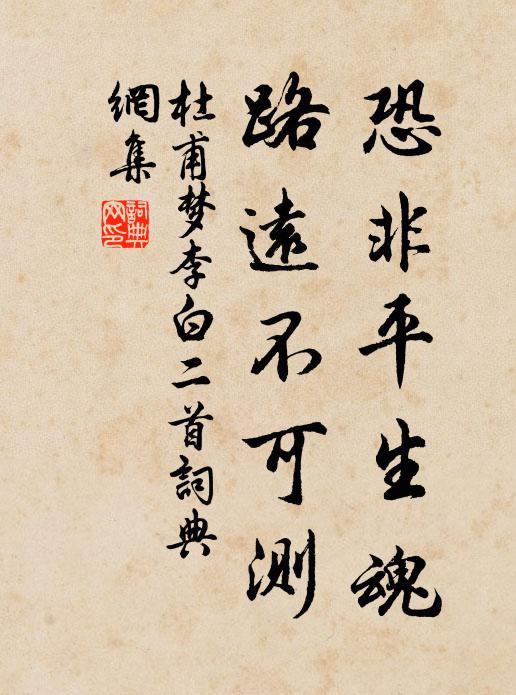 恐非平生魂
路遠不可測
杜甫梦李白二首詞典
網集
詞典
网印